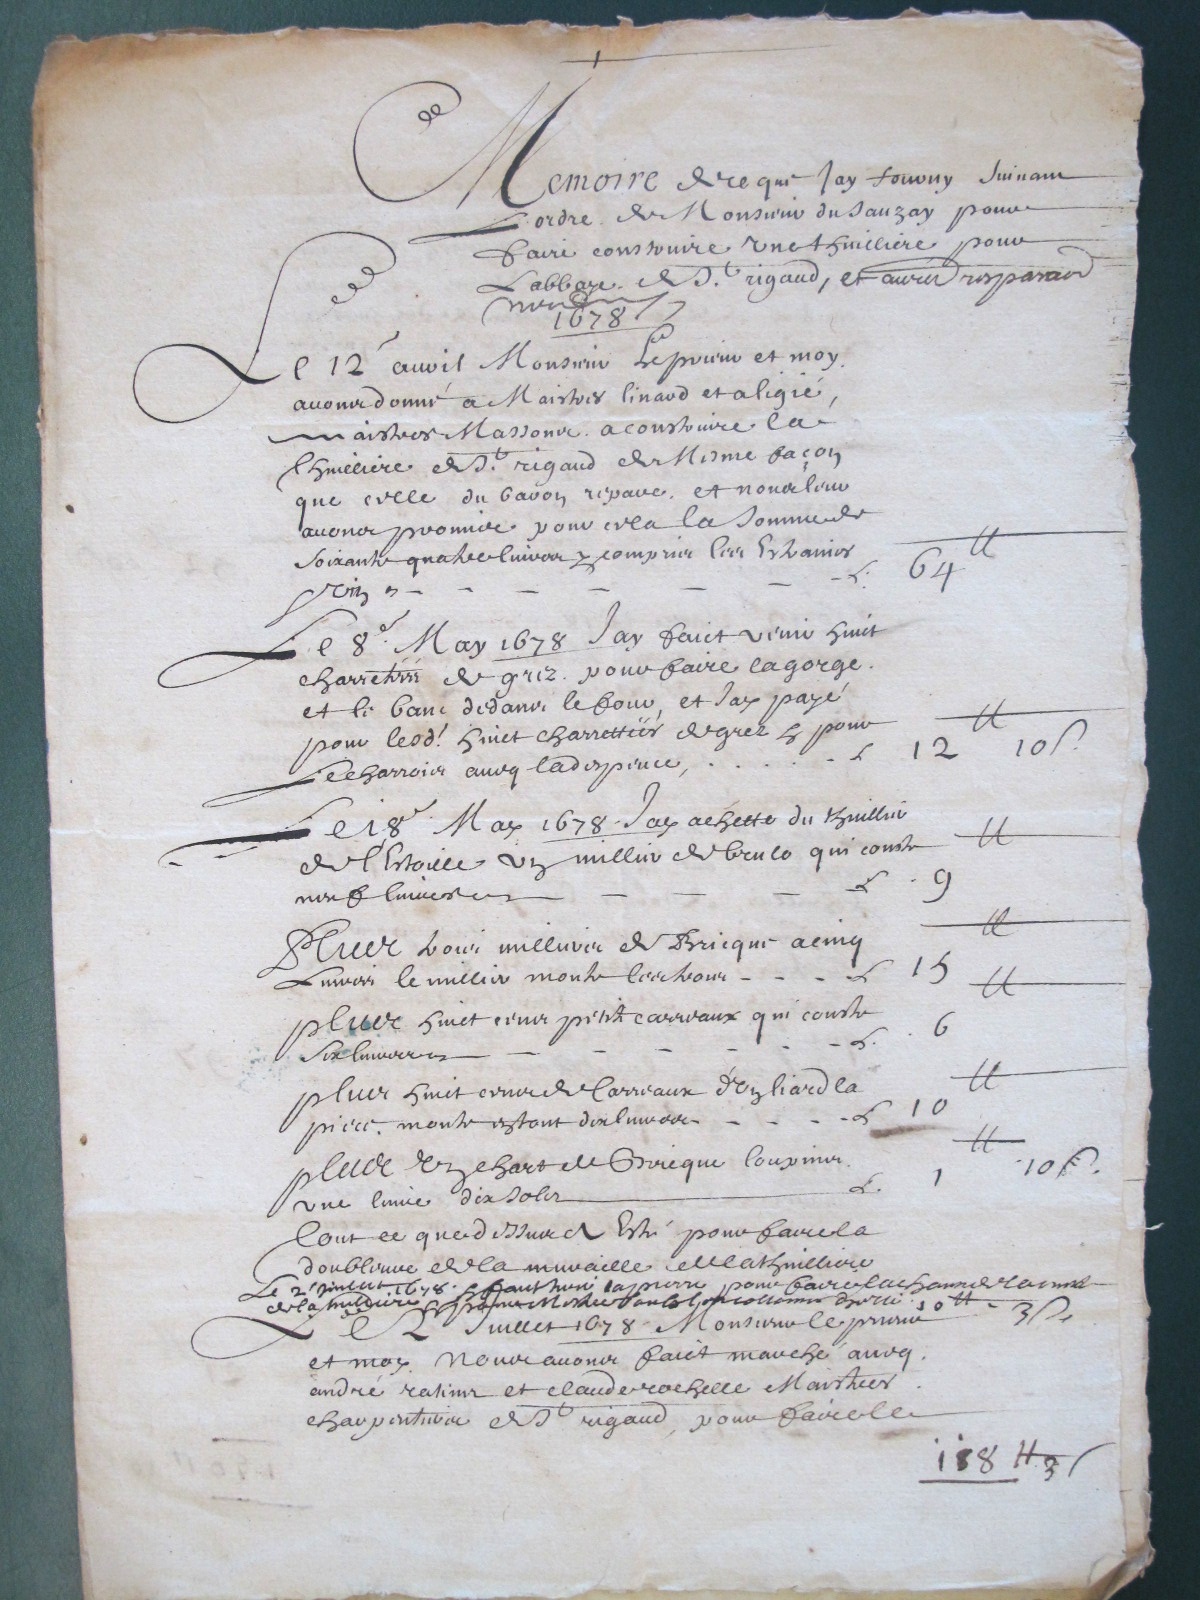 Memoire de ce que Jay fourny suivant
L'ordre de Monsieur du Sauzay pour
faire construire une thuilliere pour
Labbaye de St. rigaud, et autres reparaons
1678
Le 12e auvil Monsieur Le prieur et moy
auons donné a Maistres linard et aligié,
maistres Massons a construire la
thuilliere de St. rigaud de Mesme façon
que celle du baron repaire et nous leur
auons promis pour cela la somme de
soixante quatre liures y compris les Estraines
64 ₶
Le 8e May 1678 Jay faict venir huict
charrettées de grez pour faire la gorge
et le banc dedans le four, et Jay payé
pour lesd. huict charrettées de grez & pour
Le charrois auec la despence, 12 ₶ 10 s.
Le 18e May 1678 Jay achetté du thuillier
de l'Estoille un millier de qui couste
neuf liures 9 ₶
Plus trois milliers de Bricque a cinq
Liures le millier monte les trois 15 ₶
plus huict cens petits carreaux qui couste
six liures 6 ₶
plus huict cens de Carreaux d'un liard la
piece monte estant dix liures 10 ₶
plus un chart de Bricque
une liure dix solz 1 ₶ 10 s.
Tout ce que dessus a Esté pour faire la
doublure de la muraille de la thuilliere
Le 2e juillet 1678 la pierre pour faire la
de la thuilliere 10 ₶ 3 s.
Le 2 Juillet 1678 Monsieur le prieur
et moy Nous auons faict marché auec
andré et claude rochette Maistres
charpentiers de St. rigaud, pour faire le
118 ₶ 3 s